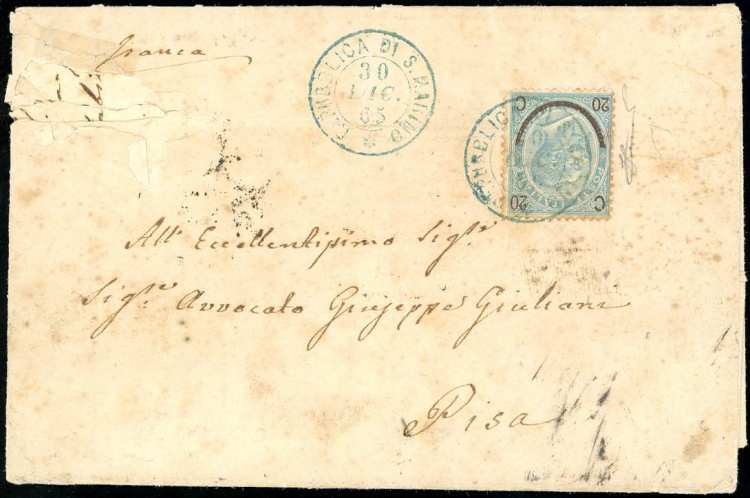 franca
REPUBBLICA DI S. MARINO
30
DIC.
65
C 20
20 C
All' Eccellentissimo Sigre
Sigre Avvocato Giuseppe Giuliani
Pisa